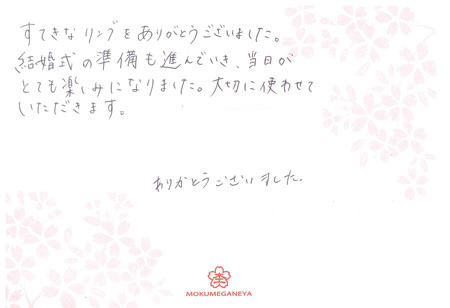 すてきなリングをありがとうございました。
結婚式の準備も進んでいき、当日が
とても楽しみになりました。大切に使わせて
いただきます。
ありがとうございました。
木
MOKUMEGANEYA